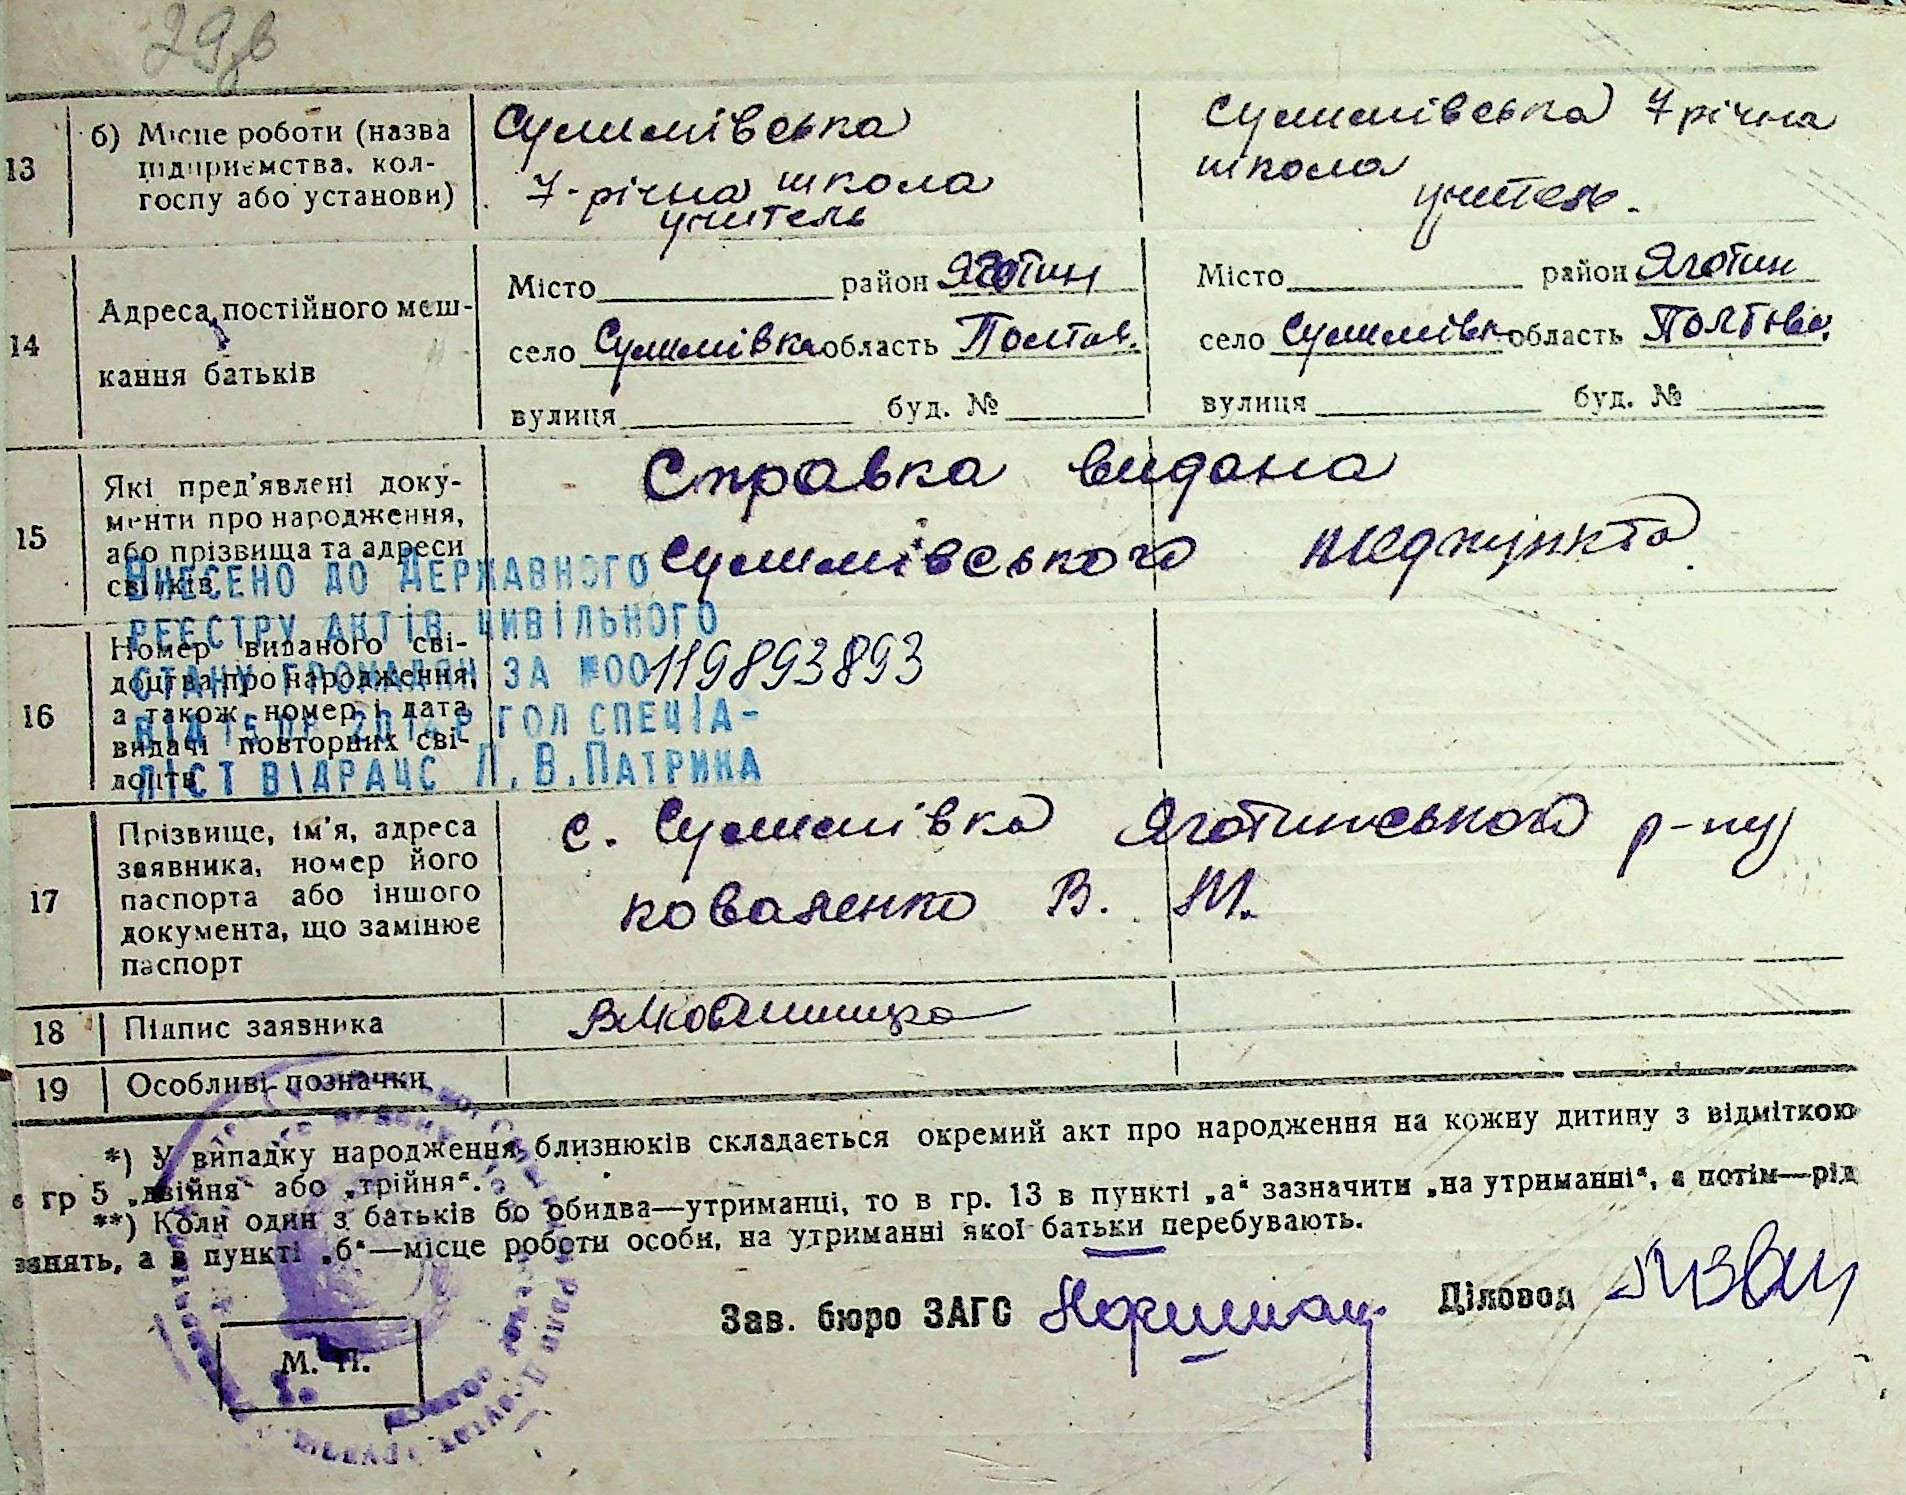 29
13
б) Місце роботи (назва
підприємства, кол-
госпу або установи)
Сулимівська
7-річна школа
учитель
Сулимівська 7 річна
школа
учитель.
14
Адреса постійного меш-
кання батьків
Місто район Яготин
село Сулимівка область Полтав.
вулиця буд. №
Місто район Яготин
село Сулимівк область Полтавс.
вулиця буд. №
15
Які пред'явлені доку-
менти про народження,
або прізвища та адреси
свідків
Справка видана
Сулимівського медпункта.
ВНЕСЕНО ДО ДЕРЖАВНОГО
РЕЄСТРУ АКТІВ ЦИВІЛЬНОГО
СТАНУ ГРОМАДЯН ЗА №00119893893
ВІД 15 2014Р ГОЛ СПЕЦІА-
ЛІСТ ВІДРАЦС Л.В.ПАТРИКА
16
Номер виданого сві-
доцтва про народження,
а також номер і дата
видачі повторних сві-
доцтв
17
Прізвище, ім'я, адреса
заявника, номер його
паспорта або іншого
документа, що замінює
паспорт
с. Сулимівка Яготинського р-ну
Коваленко В. М.
18
Підпис заявника
19
Особливі позначки
*) У випадку народження близнюків складається окремий акт про народження на кожну дитину з відміткою
в гр 5 „двійня“ або „трійня“.
**) Коли один з батьків бо обидва—утриманці, то в гр. 13 в пункті „а“ зазначити „на утриманні“, а потім—рід
занять, а в пункті „б“—місце роботи особи, на утриманні якої батьки перебувають.
Зав. бюро ЗАГС
Діловод
М. П.